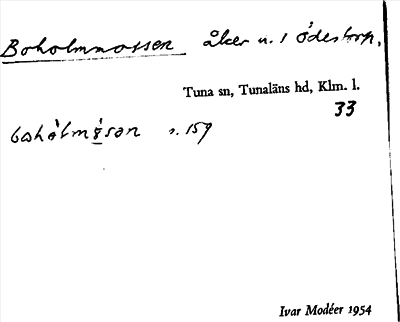 Boholmmossen åker n. 1 Ödestorp.
Tuna sn, Tunaläns hd, Klm. l.
33
s. 159
Ivar Modéer 1954